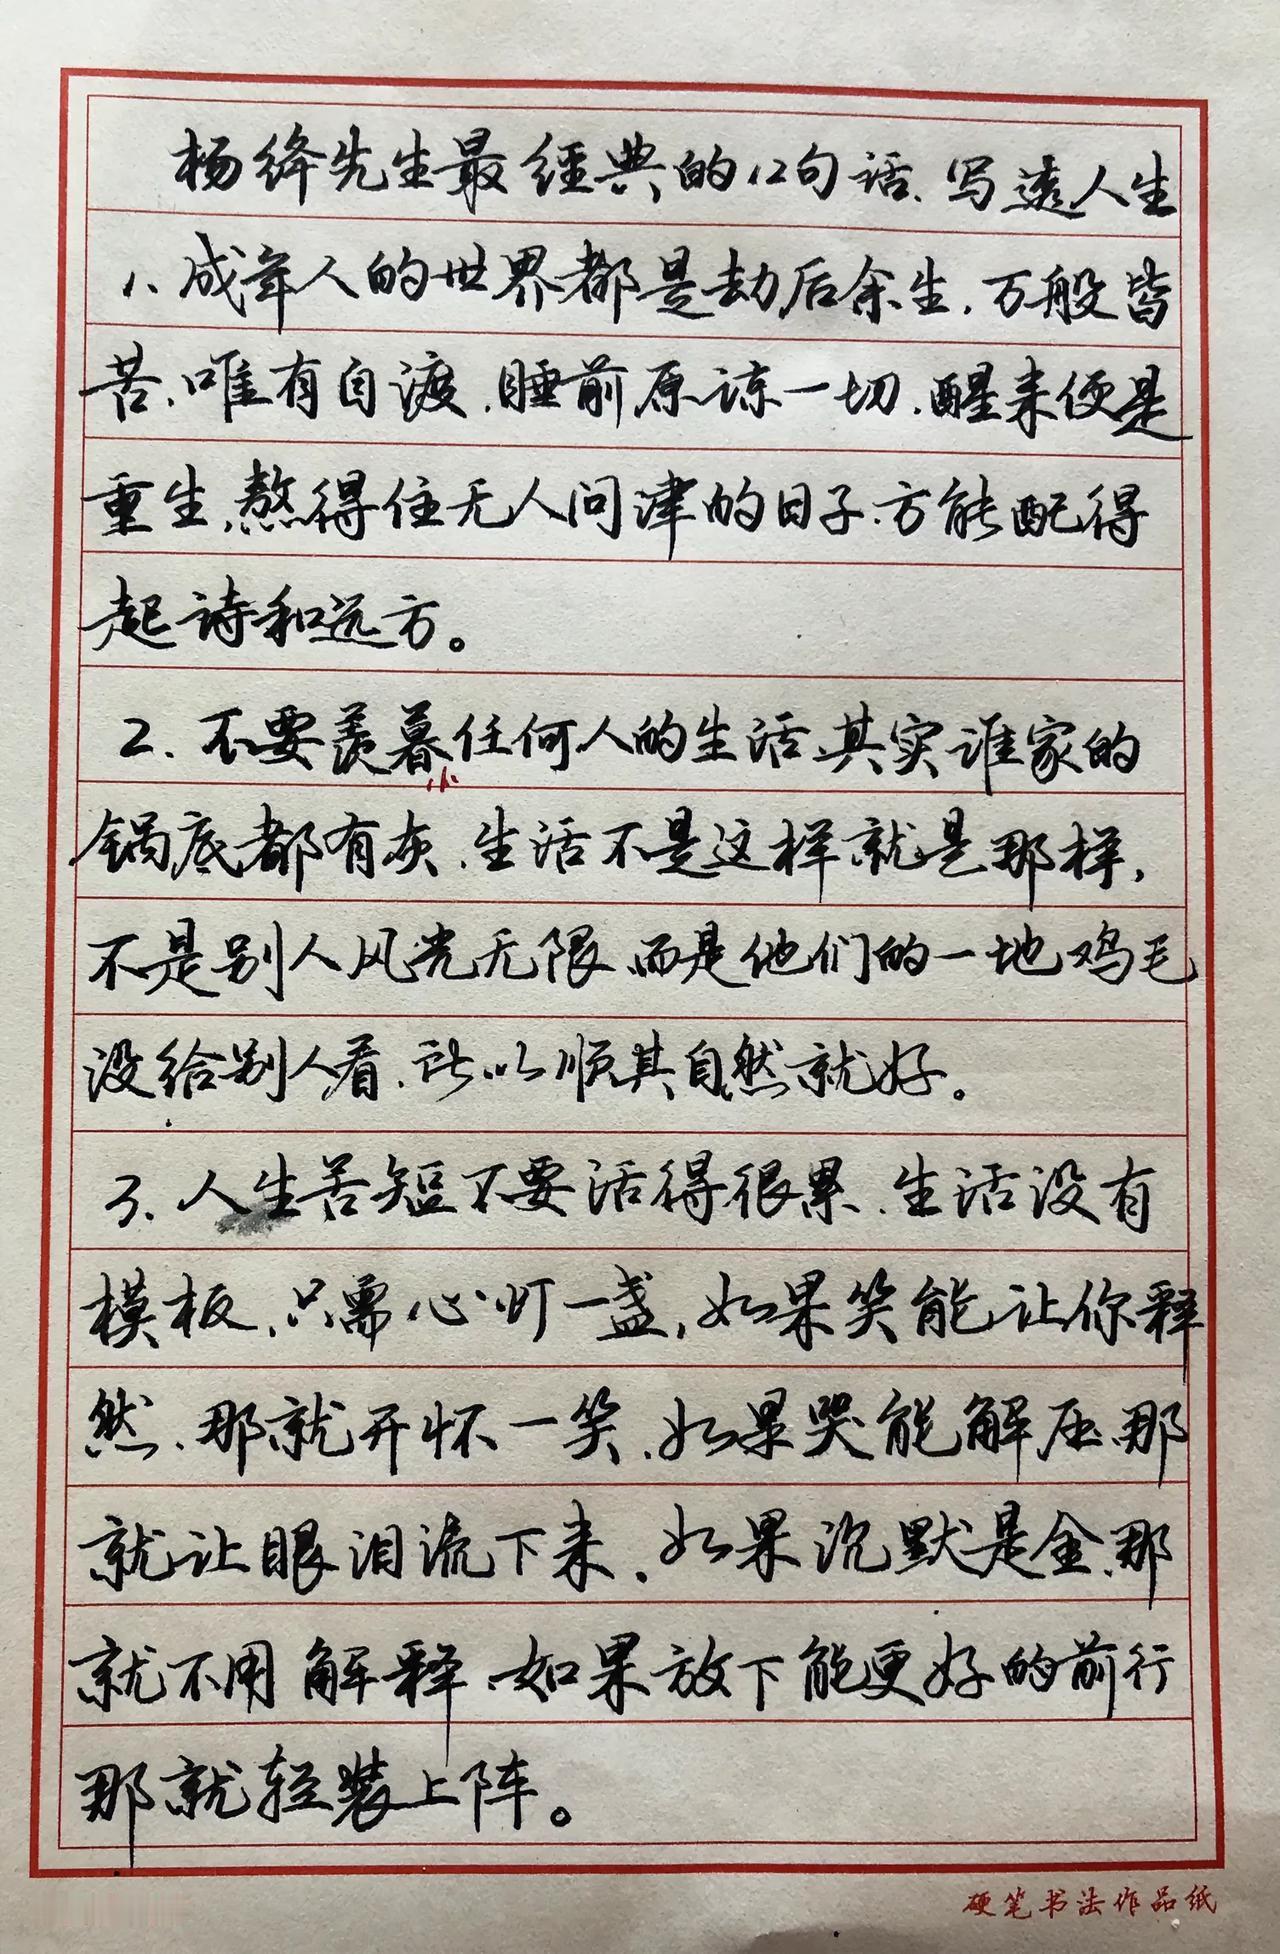 杨绛先生最经典的12句话、写透人生
1、成年人的世界都是劫后余生、万般皆
苦、唯有自渡、睡前原谅一切、醒来便是
重生、熬得住无人问津的日子、方能配得
起诗和远方。
2、不要羡慕任何人的生活、其实谁家的
锅底都有灰、生活不是这样就是那样，
不是别人风光无限、而是他们的一地鸡毛
没给别人看、所以顺其自然就好。
3、人生苦短不要活得很累、生活没有
模板、只需心灯一盏，如果笑能让你释
然、那就开怀一笑、如果哭能解压、那
就让眼泪流下来、如果沉默是金、那
就不用解释、如果放下能更好的前行
那就轻装上阵。
硬笔书法作品纸